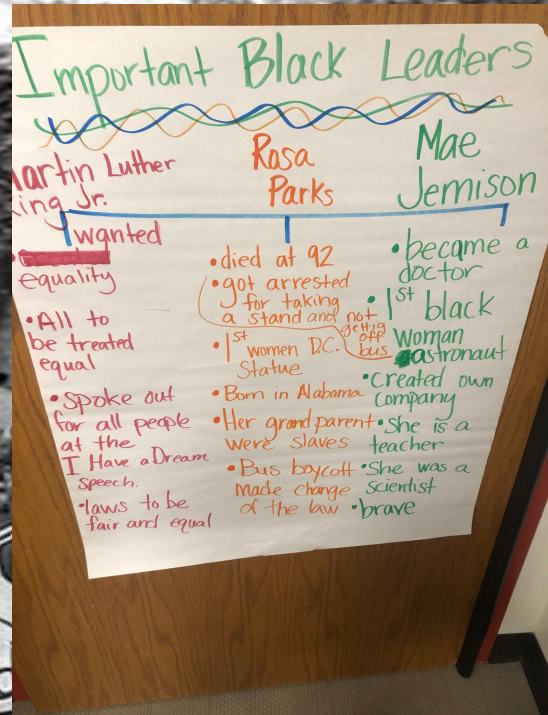 Important Black Leaders
Martin Luther
King Jr.
wanted
equality
• All to
be treated
equal
• Spoke out
for all people
at the
I Have a Dream
speech.
• laws to be
fair and equal
Rosa
Parks
• died at 92
• got arrested
for taking
a stand and not
gettig
off
bus
• 1st women D.C.
Statue
• Born in Alabama
• Her grandparent
were slaves
• Bus boycott
made change
of the law
Mae
Jemison
• became a
doctor
• 1st black
Woman
astronaut
• Created own
company
• She is a
teacher
• She was a
scientist
• brave